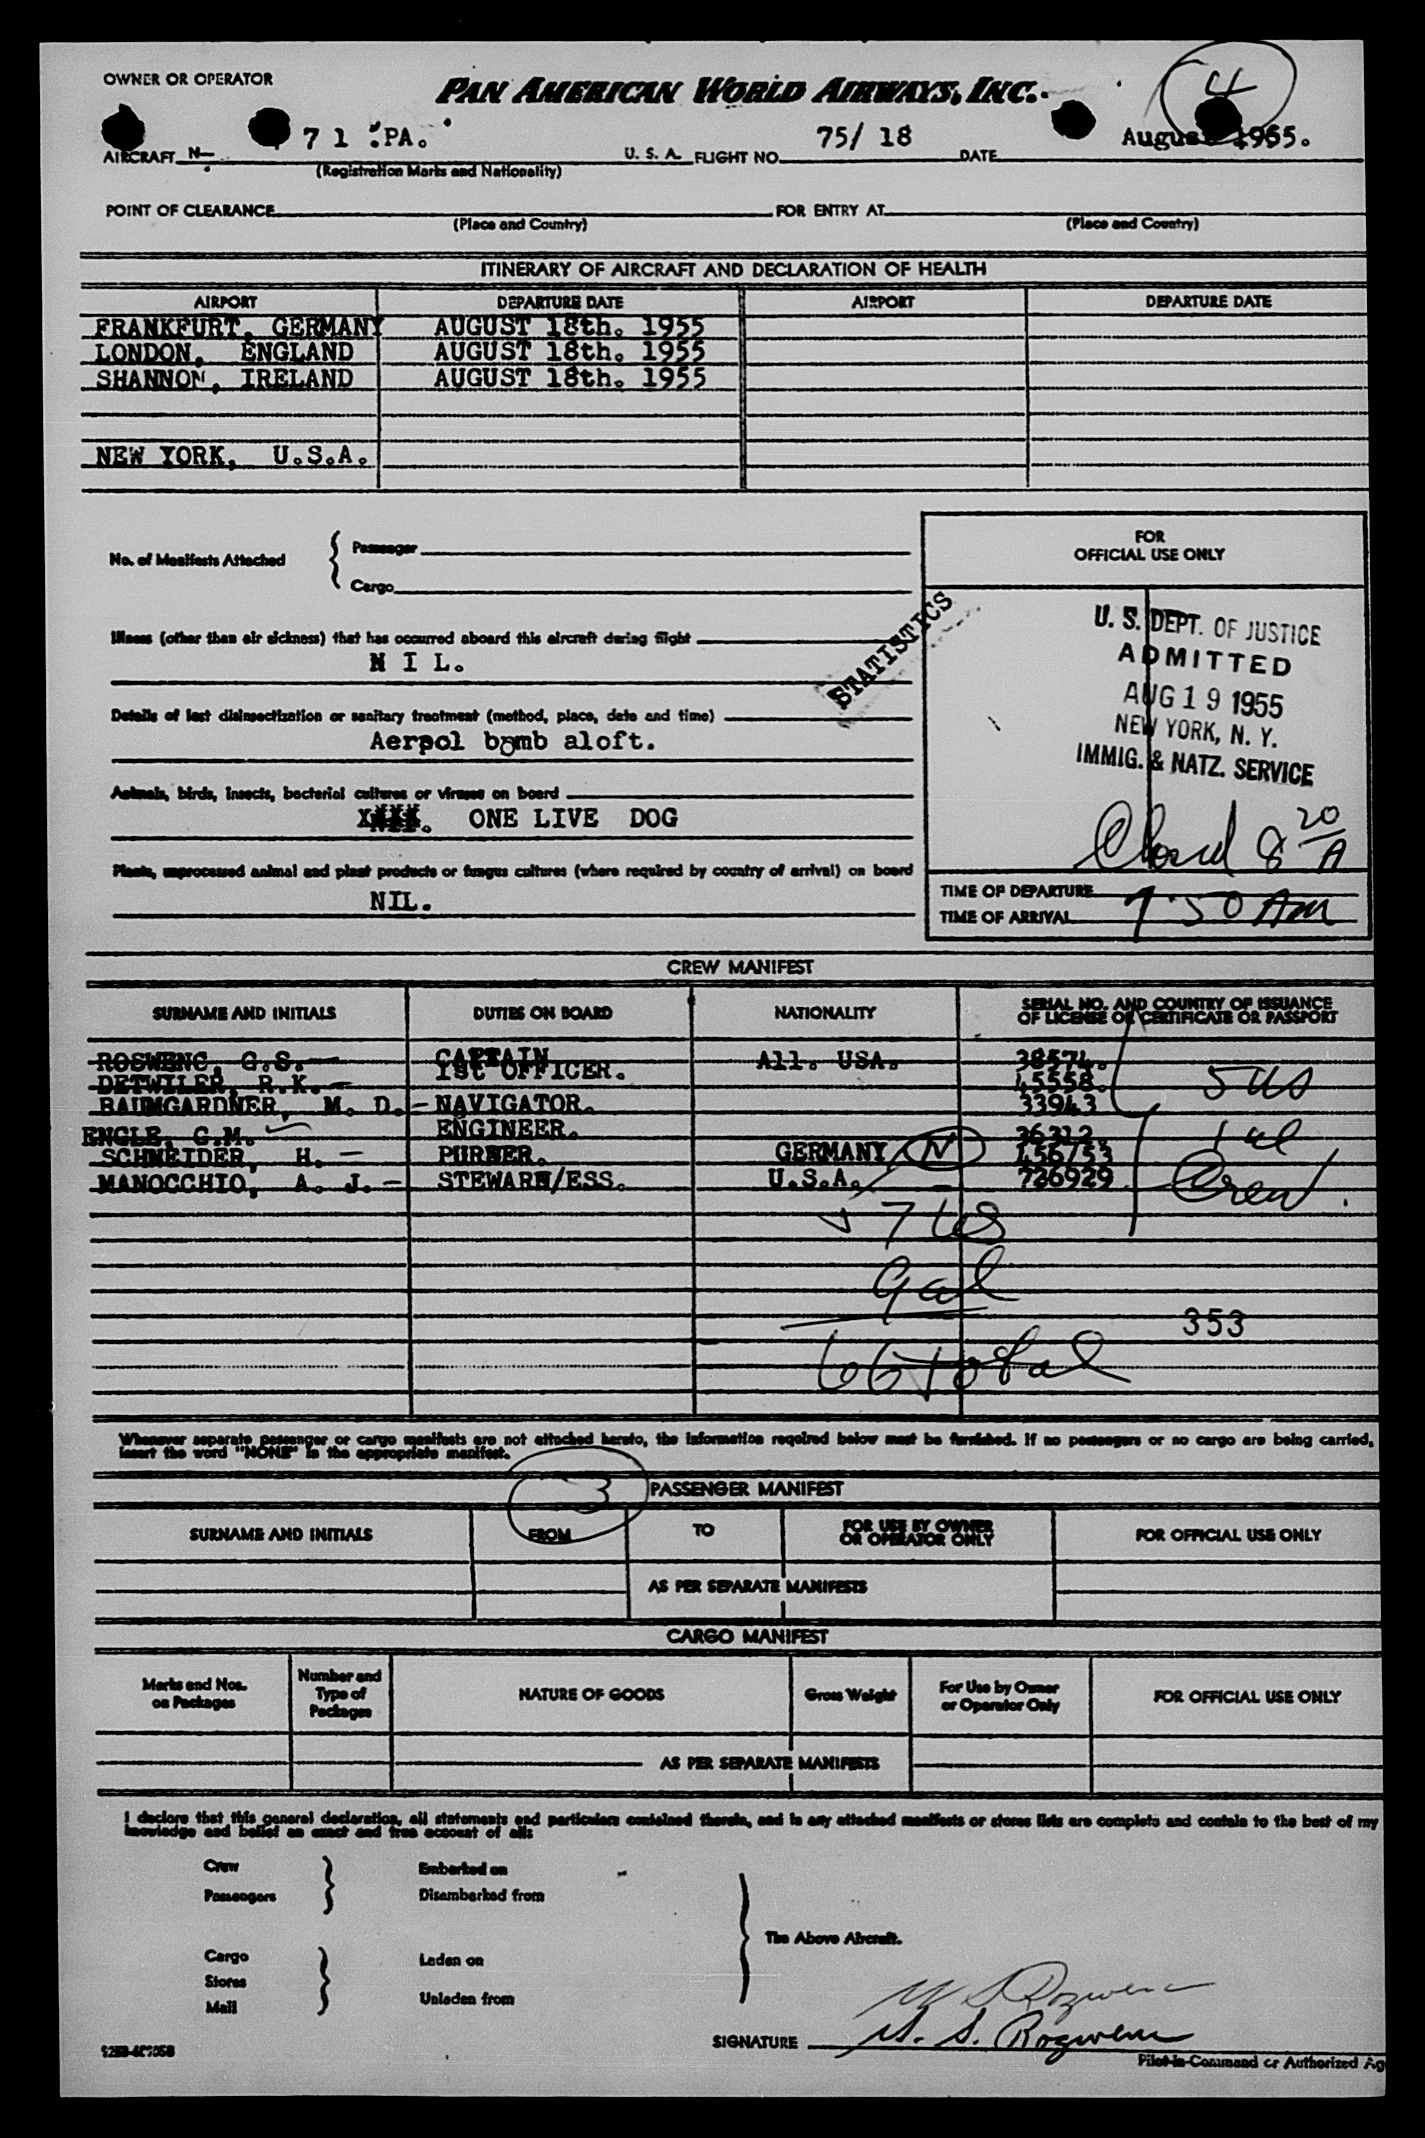 OWNER OR OPERATOR
PAN AMERICAN WORLD AIRWAYS, INC.
4
AIRCRAFT N- 71 PA. U. S. A. FLIGHT NO. 75/ 18 DATE August 1955.
(Registration Marks and Nationality)
POINT OF CLEARANCE FOR ENTRY AT
(Place and Country) (Place and Country)
ITINERARY OF AIRCRAFT AND DECLARATION OF HEALTH
AIRPORT DEPARTURE DATE AIRPORT DEPARTURE DATE
FRANKFURT, GERMANY AUGUST 18th. 1955
LONDON, ENGLAND AUGUST 18th. 1955
SHANNON, IRELAND AUGUST 18th. 1955
NEW YORK, U.S.A.
FOR
OFFICIAL USE ONLY
No. of Manifests Attached { Passenger
Cargo
STATISTICS
U. S. DEPT. OF JUSTICE
ADMITTED
AUG 19 1955
NEW YORK, N. Y.
IMMIG. & NATZ. SERVICE
Illness (other than air sickness) that has occurred aboard this aircraft during flight
N I L.
Details of last disinsectization or sanitary treatment (method, place, date and time)
Aerpol bomb aloft.
Animals, birds, insects, bacterial cultures or viruses on board
ONE LIVE DOG
8 20/A
Plants, unprocessed animal and plant products or fungus cultures (where required by country of arrival) on board
NIL.
TIME OF DEPARTURE
TIME OF ARRIVAL 7 50 Am
CREW MANIFEST
SURNAME AND INITIALS DUTIES ON BOARD NATIONALITY SERIAL NO. AND COUNTRY OF ISSUANCE
OF LICENSE OR CERTIFICATE OR PASSPORT
ROSWENC, G.S. CAPTAIN All. USA. 38574.
DETWILER, R.K. 1st OFFICER. 45558. 5 US
BAUMGARDNER, M. D. NAVIGATOR. 33943
ENGLE, C.M. ENGINEER. 36312. 1 al
SCHNEIDER, H. PURSER. GERMANY N 456753
MANOCCHIO, A. J. STEWARD/ESS. U.S.A. 726929 Crew
7 US
9 al
353
66 total
Whenever separate passenger or cargo manifests are not attached hereto, the information required below must be furnished. If no passengers or no cargo are being carried,
insert the word "NONE" in the appropriate manifest.
3
PASSENGER MANIFEST
SURNAME AND INITIALS FROM TO FOR USE BY OWNER
OR OPERATOR ONLY FOR OFFICIAL USE ONLY
AS PER SEPARATE MANIFESTS
CARGO MANIFEST
Marks and Nos.
on Packages Number and
Type of
Packages NATURE OF GOODS Gross Weight For Use by Owner
or Operator Only FOR OFFICIAL USE ONLY
AS PER SEPARATE MANIFESTS
I declare that this general declaration, all statements and particulars contained therein, and in any attached manifests or stores lists are complete and contain to the best of my
knowledge and belief an exact and true account of all:
Crew Embarked on
Passengers Disembarked from
The Above Aircraft.
Cargo Laden on
Stores
Mail Unladen from
SIGNATURE
Pilot-in-Command or Authorized Ag